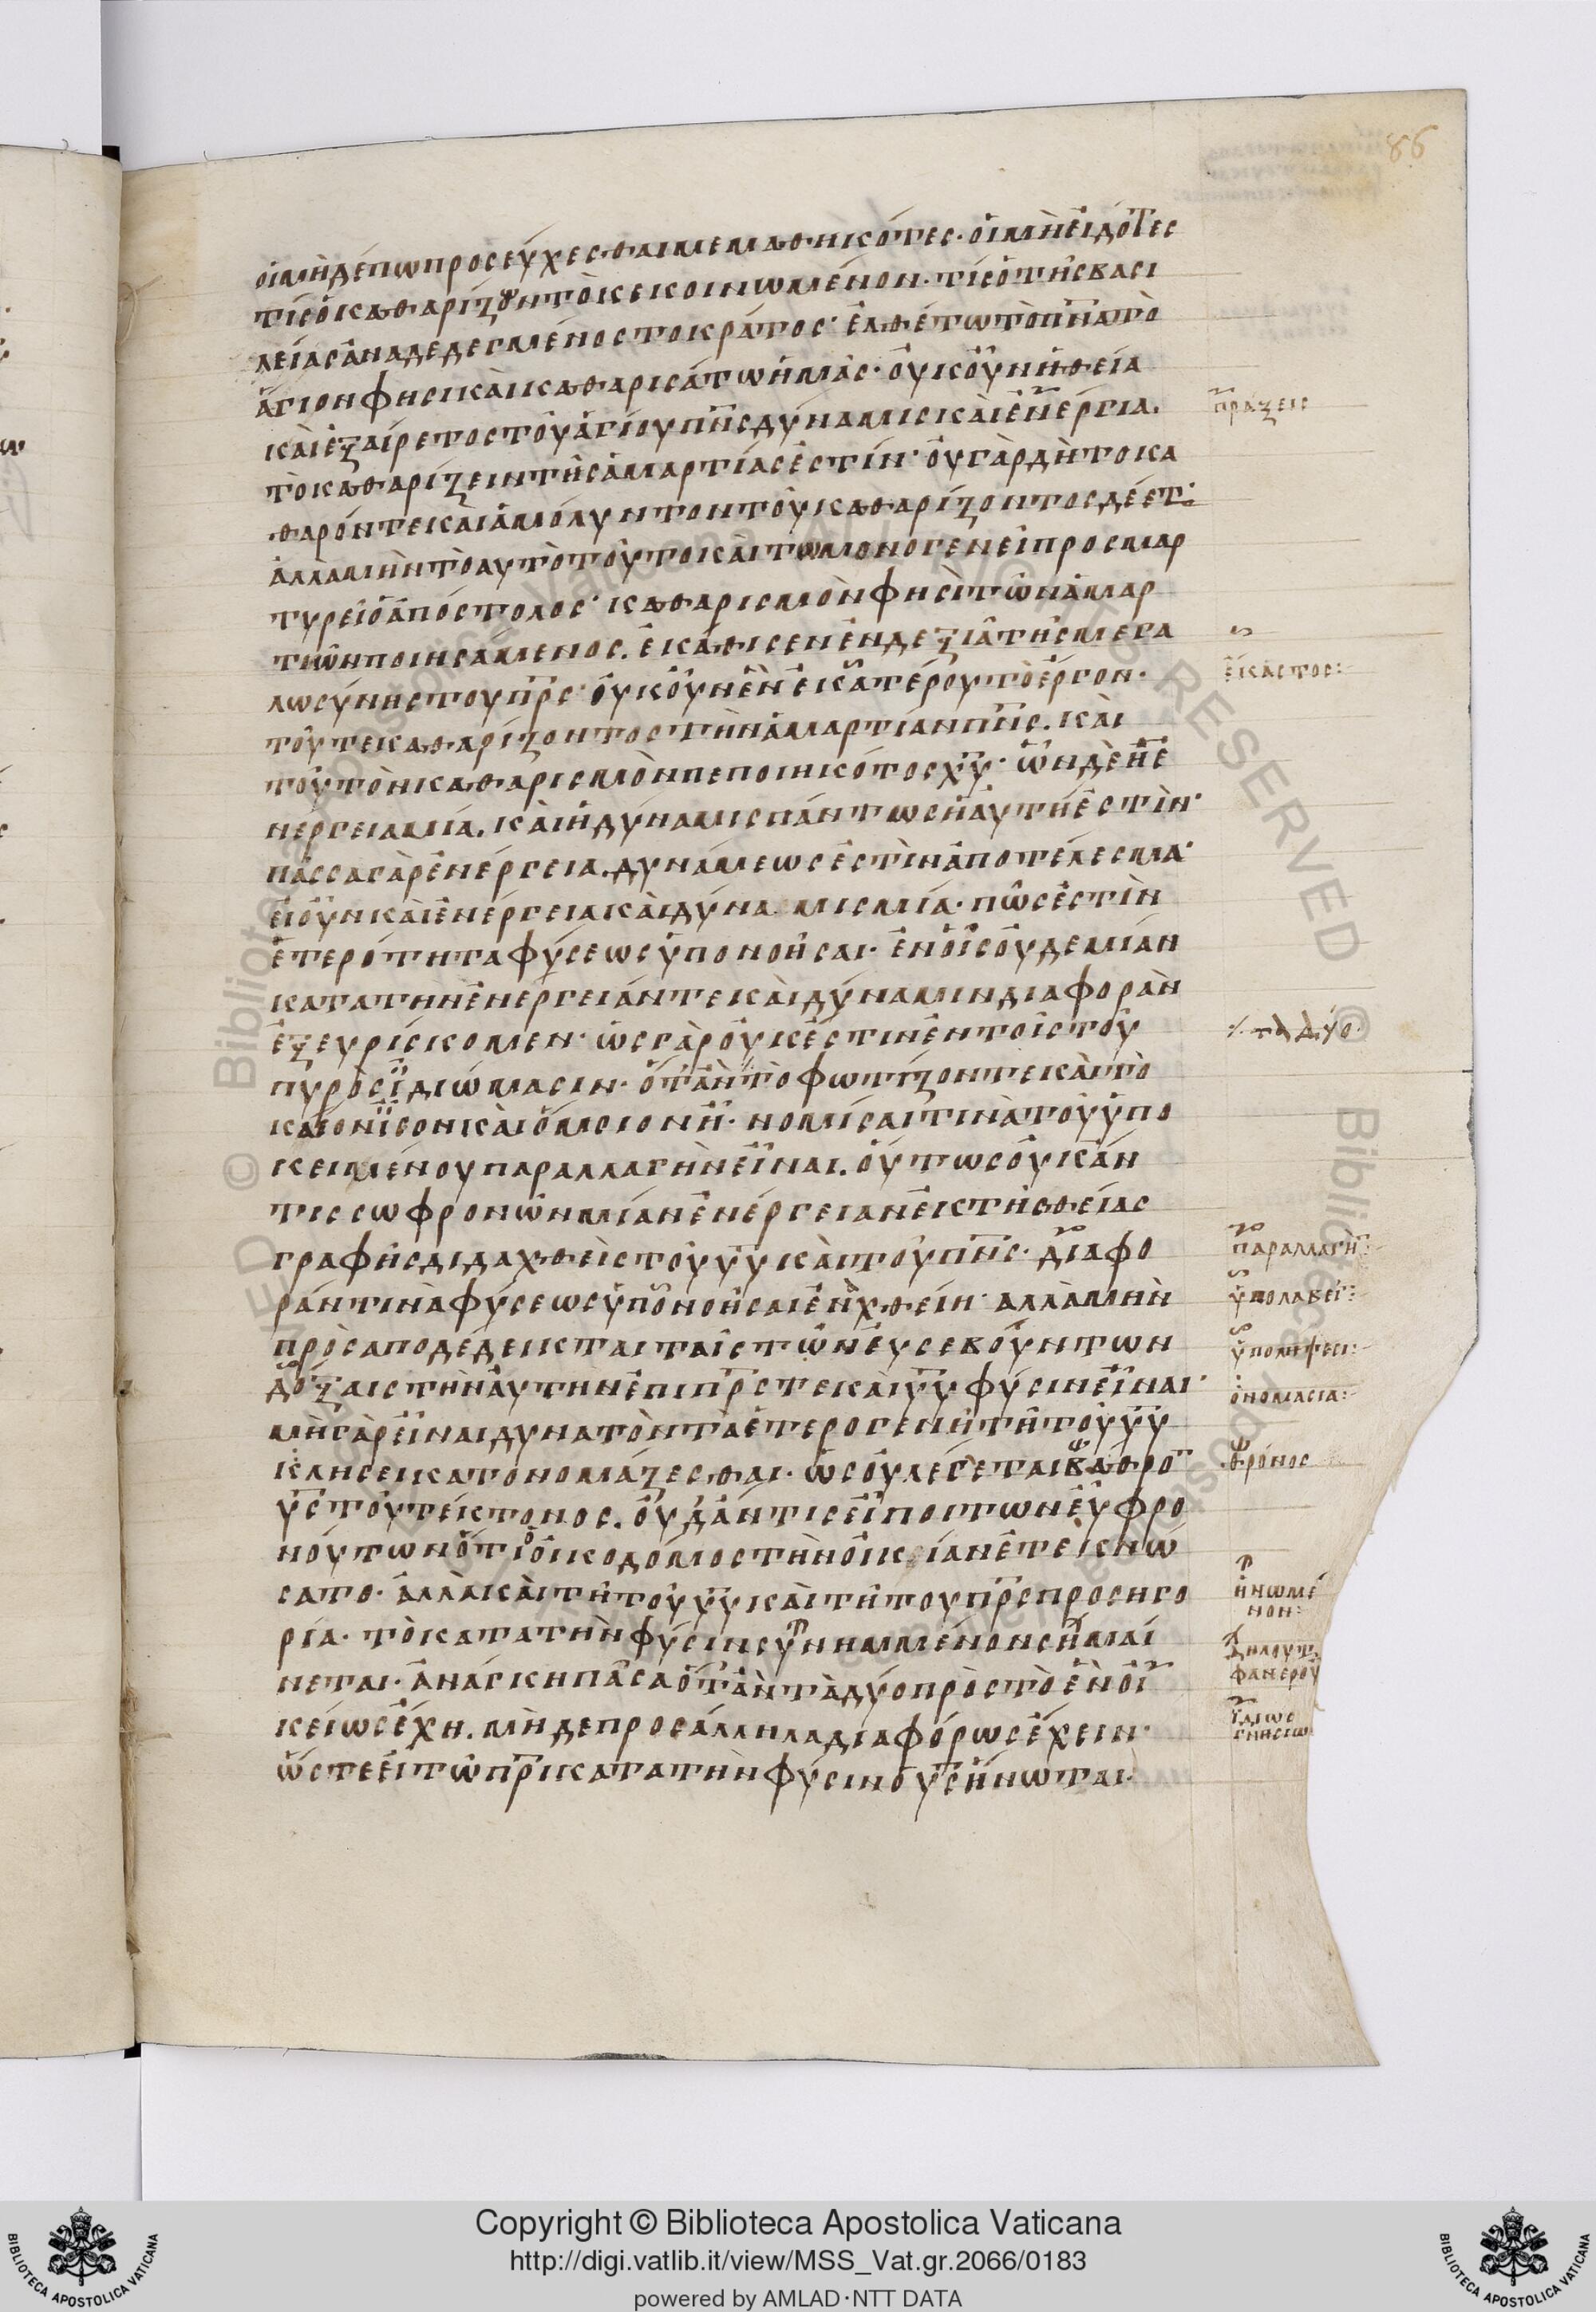 86
οἱ μὴδέπω προσεύχεσθαι μεμαθηκότες· οἱ μὴ εἰδότες
τίς ὁ καθαρίζων τὸ κεκοινωμένον· τίς ὁ τῆς βασι
λείας ἀναδεδεγμένος το κράτος· ἐλθέτω τὸ πνα τὸ
ἅγιον φησι καὶ καθαρισάτω ἡμᾶς· οὐκοῦν ἡ θεία
καὶ ἐξαίρετος τοῦ ἁγίου πνς δύναμις καὶ ἐνέργια.
τὸ καθαρίζειν τῆς ἁμαρτίας ἐστίν· οὐ γὰρ δὴ το κα
θαρόν τε καὶ ἀμόλυντον τοῦ καθαρίζοντος δέετ·
ἀλλα μὴν τὸ αυτὸ τοῦτο καὶ τω μονογενεῖ προσμαρ
τυρεῖ ὁ ἀπόστολος· καθαρισμὸν φησὶ τῶν ἁμαρ
τιῶν ποιησάμενος. ἐκάθισεν ἐν δεξιᾶ τῆς μεγα
λωσύνης του πρς· οὐκοῦν ἓν ἑκατέρου τὸ ἔργον·
τοῦ τε καθαρίζοντος τὴν ἁμαρτίαν πνς. καὶ
τοῦ τὸν καθαρισμὸν πεποιηκότος χυ· ὧν δὲ ἡ ἐ
νεργεια μία. καὶ ἡ δύναμις πάντως ἡ αὐτή ἐστὶν·
πᾶσσα γὰρ ἐνέργεια. δυνάμεως ἐστὶν ἀποτέλεσμα·
εἰ οὖν καὶ ἐνέργεια καὶ δύναμις μία· πῶς ἐστὶν
ἑτερότητα φύσεως ὑπονοῆσαι· ἐν οἷς οὐδεμίαν
κατα την ἐνεργειάν τε καὶ δύναμιν διαφορὰν
ἐξευρίσκομεν· ὡς γὰρ οὐκ ἔστιν ἐν τοῖς τοῦ
πυρὸς ἰδιώμασιν· ὅτ' ἂν τὸ φωτίζον τε καὶ τὸ
καῖον ἴσον καὶ ὅμοιον ἦ· νομίσαί τινὰ τοῦ ὑπο
κειμένου παραλλαγὴν εἶναι. οὕτως οὐκ ἄν
τις σωφρονῶν μίαν ἐνέργειαν ἐκ τῆς θείας
γραφῆς διδαχθεὶς τοῦ υυ καὶ τοῦ πνς· διαφο
ράν τινὰ φύσεως ὑπονοῆσαι ἐναχθείη· αλλὰ μὴν
πρὸς αποδέδεικται ταῖς τῶν ἐυσεβούντων
δόξαις τὴν αὐτην ἐπι πρς τε καὶ υυ φύσιν εἶναι·
μὴ γὰρ εἶναι δυνατὸν τὰ ἑτερογενῆ τῆ τοῦ υυ
κλησει κατονομάζεσθαι· ὡς οὐ λέγεται βάθρον
υς τοῦ τέκτονος. οὐδ' ἄν τις εἴποι των εὐφρο
νούτων ὅτι ὁ οἰκοδόμος τὴν οἰκίαν ἐτεκνώ
σατο· ἀλλὰ καὶ τῆ τοῦ υυ καὶ τῆ του πρς προσηγο
ρία· τὸ κατα τὴν φύσιν συνημμένον σημαί
νεται· ἀνάγκη πᾶσα ὅτ' ἂν τὰ δύο πρὸς τὸ ἓν οἰ
κείως ἔχη. μὴδε προς άλληλα διαφόρως ἔχειν·
ὥστε εἰ τῶ πρι κατα τὴν φύσιν ὁ υς ἥνωται·
πράξεις
ἑκάστος:
τὰ δύο·
παραλλαγὴ:
ὑπολαβεῖ:
ὑπολήψεσι:
ὀνομασία:
θρόνος
ἡνωμέ
νον:
δηλουτ
φανερου
ἰδίως
γνησίω
Copyright © Biblioteca Apostolica Vaticana
http://digi.vatlib.it/view/MSS_Vat.gr.2066/0183
powered by AMLAD·NTT DATA
BIBLIOTECA APOSTOLICA VATICANA
BIBLIOTECA APOSTOLICA VATICANA